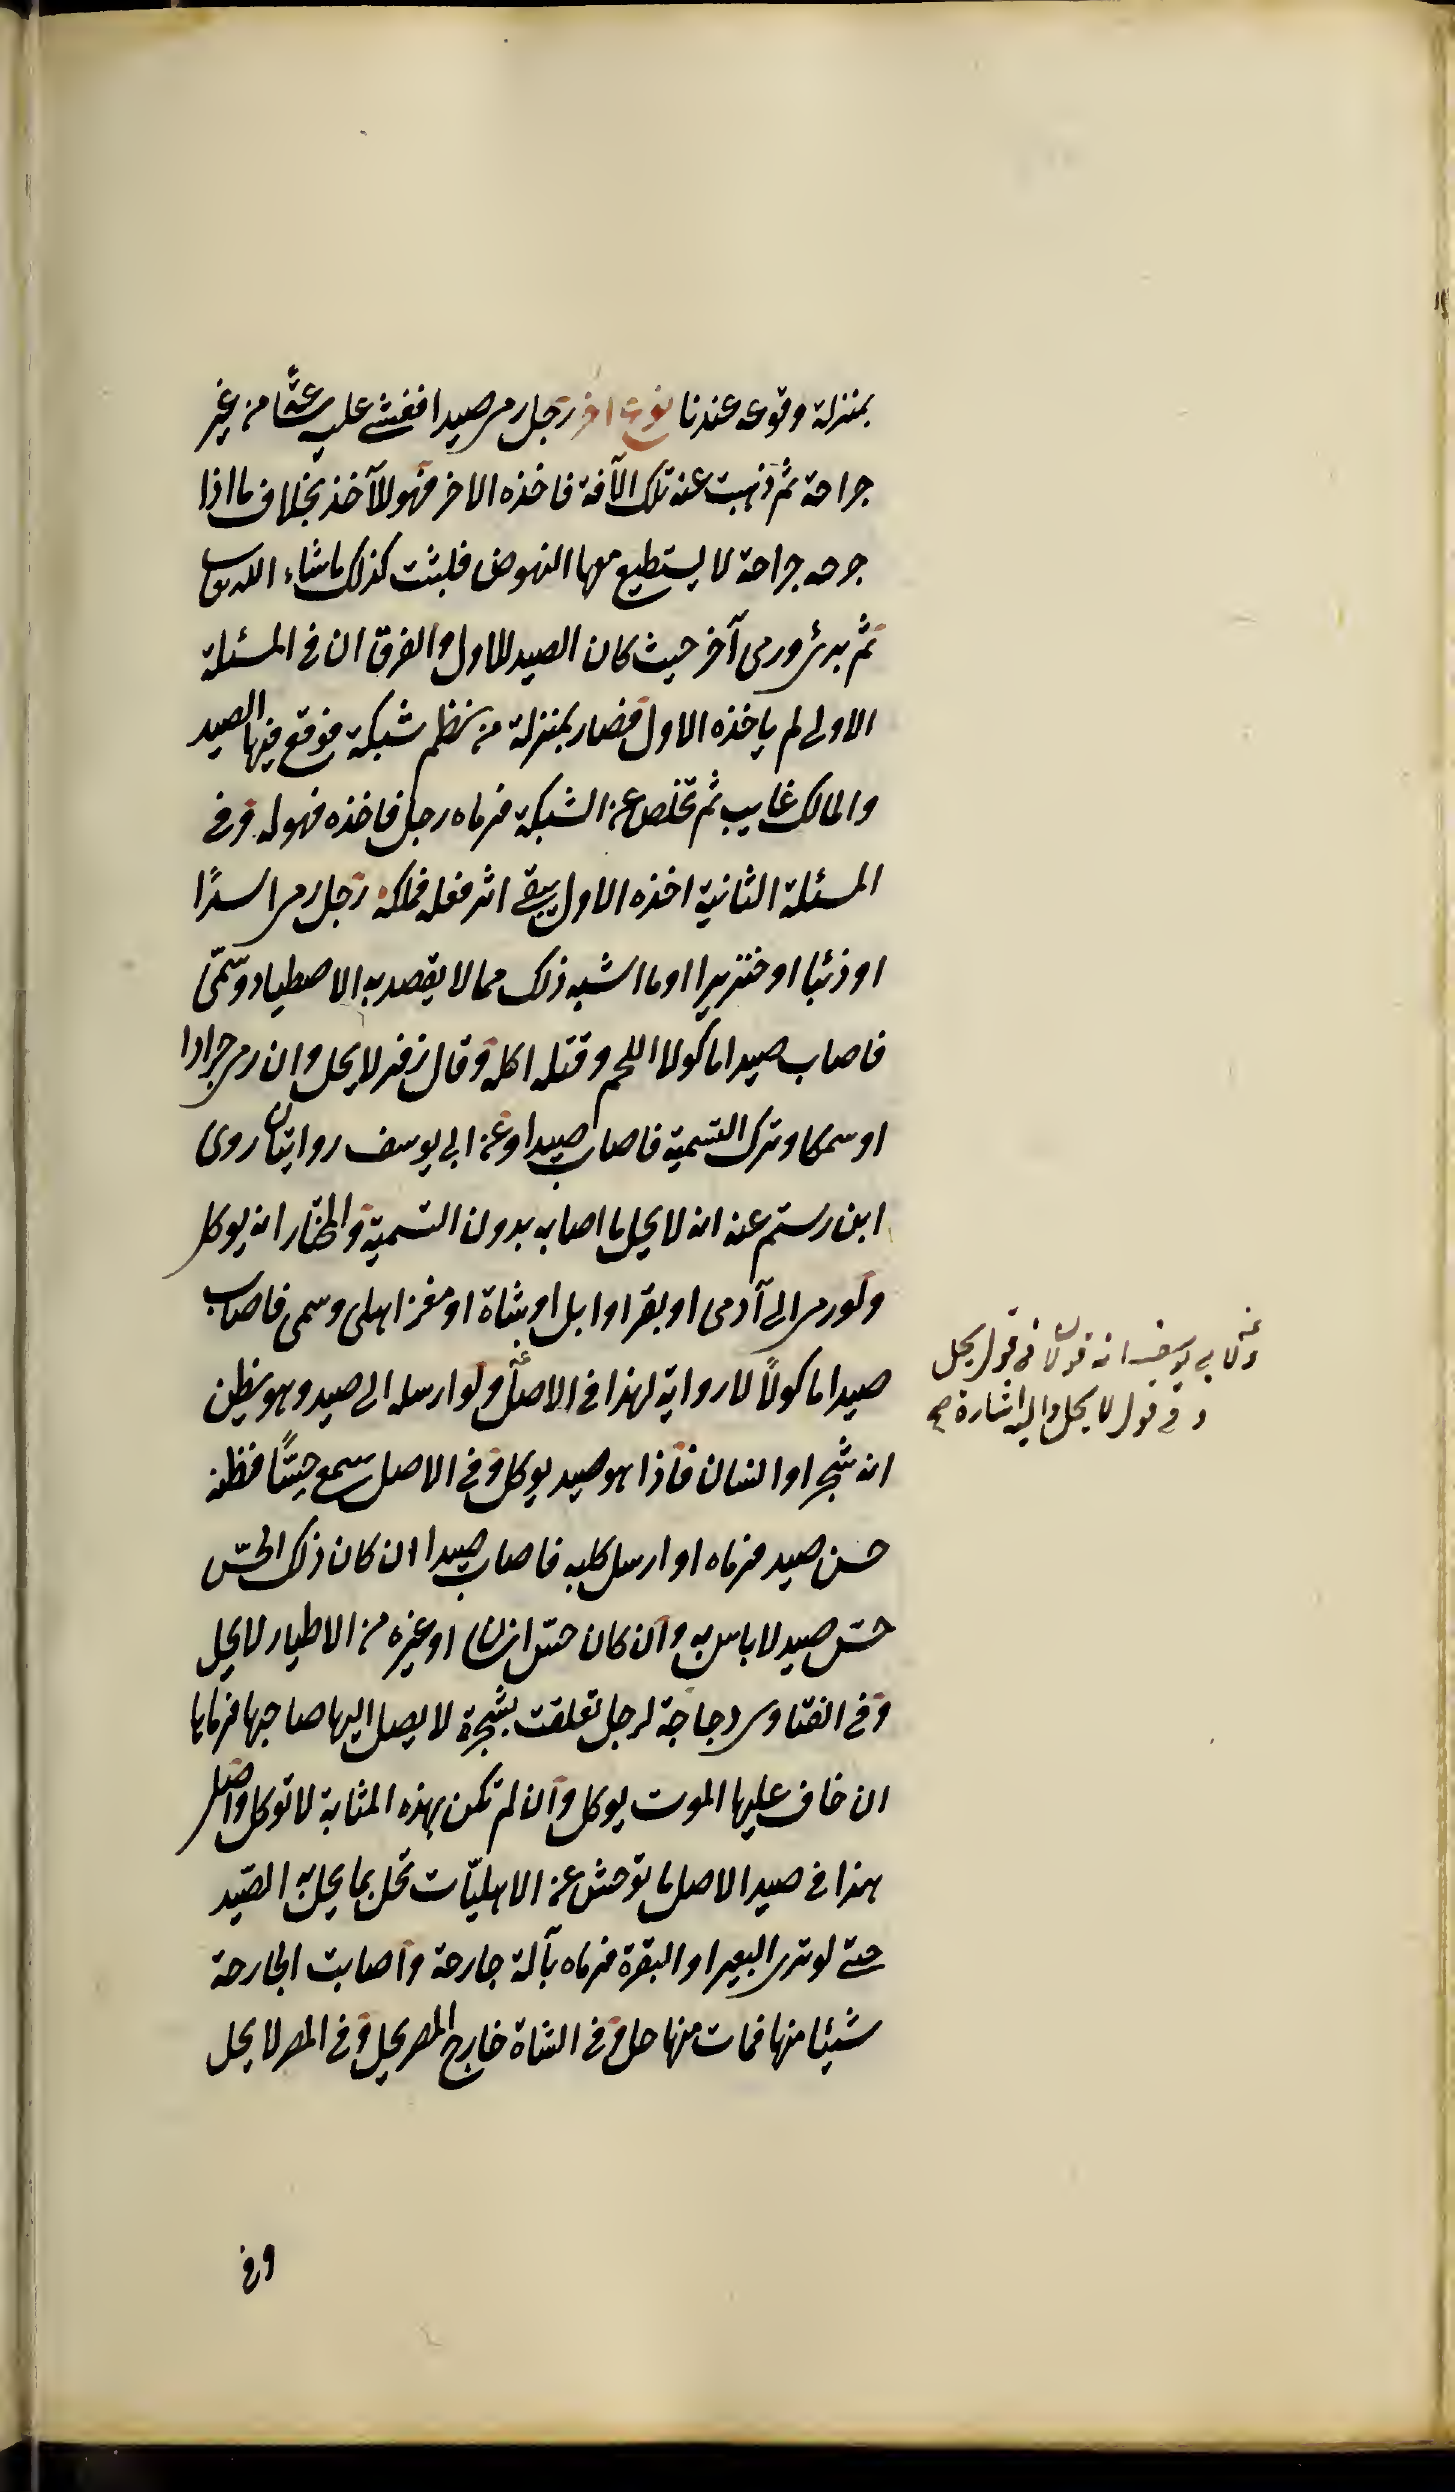 بمنزلة وقوعه عندنا نوع اخر رجل رمى صيدا فغشى عليه غشّا من غير
جراحة ثم ذهبت عنه تلك الآفة فاخذه الاخر فهو للآخذ بخلاف ما اذا
جرحه جراحة لا يستطيع معها النهوض فلبثت كذلك ما شاء الله
ثم برئ ورمى آخر حيث كان الصيد للاول والفرق ان فى المسئلة
الاولى لم ياخذه الاول فصار بمنزلة من نظم شبكة فوقع فيها الصيد
والمالك غايب ثم تخلص عن الشبكة فرماه رجل فاخذه فهو له وفى
المسئلة الثانية اخذه الاول يبقى اثر فعله فملكه رجل رمى اسدًا
او ذئبا او خنزيرا او ما اشبه ذلك مما لا يقصد به الاصطياد وسمّى
فاصاب صيدا ماكولا اللحم وقتله اكله وقال زفر لا يحل وان رمى جرادا
او سمكا وترك التسمية فاصاب صيدا وعن ابى يوسف روايتان روى
ابن رستم عنه انه لا يحل ما اصابه بدون التسمية والمختار انه يوكل
ولو رمى الى آدمى او بقر او ابل او شاة او معز اهلى وسمى فاصاب
صيدا ماكولاً لا رواية لهذا فى الاصل ولو ارسله الى صيد وهو يظن
انه شجر او انسان فاذا هو صيد يوكل وفى الاصل سمع حسًّا فظنه
حسن صيد فرماه او ارسل كلبه فاصاب صيدا ان كان ذلك الحسّ
حسّ صيد لا باس به وان كان حسّ انسان او غيره من الاطيار لا يحل
وفى الفتاوى دجاجة لرجل تعلقت بشجرة لا يصل اليها صاحبها فرماها
ان خاف عليها الموت يوكل وان لم تكن بهذه المثابة لا توكل واصل
هذا فى صيد الاصل ما توحش عن الاهليّات تحل بما يحل به الصّيد
حتى لو ترى البعير او البقرة فرماه بآلة جارحة واصابت الجارحة
شيئا منها فمات منها حل وفى الشاة خارج المصر يحل وفى المصر لا يحل
عنه
ولابى يوسف انه قولان فى قول يحل
وفى قول لا يحل واليه اشارة صح
وفى